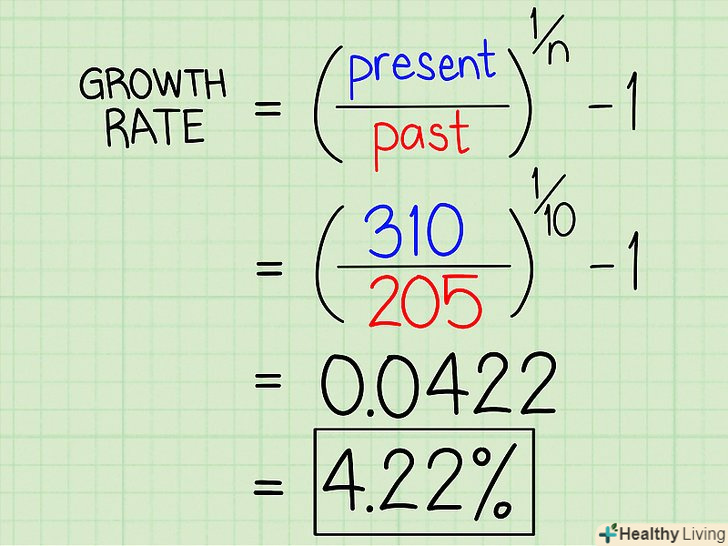 GROWTH RATE = (present/past)^1/n - 1
= (310/205)^1/10 - 1
= 0.0422
= 4.22%
Healthy Living